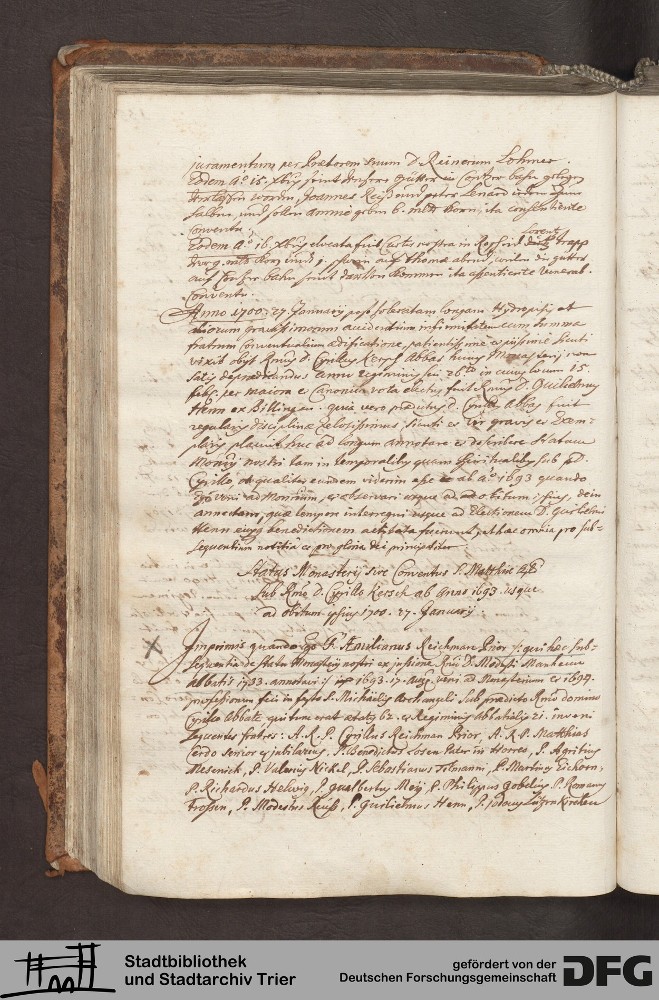 juramentum per Praetorem suum D. Reinerum Lohmer.
Eodem Ao. 15. Xbris seint unsere gütter in
worden Joannes Reuß und peter Lenard
halbe, und sollen annue geben 6. mltr Korn, ita consentiente
Conventu.
Lorentz
Eodem Ao. 16. Xbris elocata fuit Curtis nostra in trapp
9. mltr Korn und
auf seint ita assentiente Venerab.
Conventu.
Anno 1700. 27. January post toleratam longam Hydropisis et
aliorum gravissimorum accidentium infirmitatem cum summa
fratrum Conventualium aedificatione, patientissime ac piissime sicuti
vixit obyt Rmus D. Cyrillus Kersch Abbas huius Monasterij non
satis depraedicandus anno regiminis sui 26to in cuius locum 15.
febr. per maiora et Canonica vota electus fuit Rmus D. Guilielmus
Henn ex Billingen. quia vero praedictus D. Cyrillus Abbas fuit
regularis Disciplinae Zelosissimus, sicuti et vir gravis et Exem-
plaris placuit huc ad longum annotare et describere Statum
Monrij nostri tam in temporalibus quam spiritualibus sub pd.
Cyrillo, et qualiter eundem viderim esse ab ao. 1693 quando
ego veni ad Monrium, et observavi usque ad obitum ipsius, dein
annectam, quae tempore interregni usque ad Electionem D. Guilielmi
Henn eiusque benedictionem acta fuerunt, et haec omnia pro sub-
sequentium notitia et pro gloria dei principaliter
Status Monasterij sive Conventus S. Matthiae Apli
sub Rmo D. Cyrillo Kersch ab anno 1693. usque
ad obitum ipsius 1700. 27. January.
Imprimis quando ego Fr. Aemilianus Reichman Prior /: qui haec sub-
sequentia de statu Monasterij nostri ex jussione Rmi D. Modesti Manheim
Abbatis 1733. annotavi :/ 1693. 17. veni ad Monasterium et 1694.
professionem feci in festo S. Michaelis Archangeli sub praedicto Rmo domino
Cyrillo Abbate, qui tunc erat aetatis 62. et Regiminis Abbatialis 21. inveni
sequentes fratres: A. R. P. Cyrillus Reichman Prior, A. R. P. Matthias
Cerdo Senior et jubilarius, P. Benedictus Losen Pater in Horres, P. Agritius
Mesenich, P. Valerius Nickel, P. Sebastianus Tolmann, P. Martinus Eichorn,
P. Richardus Helwig, P. Gualbertus Meij, P. Philippus Gobelius, P. Romanus
trossen, P. Modestus Reuss, P. Guilielmus Henn, P. Jodocus Lutzenkirchen
Stadtbibliothek
und Stadtarchiv Trier
gefördert von der
Deutschen Forschungsgemeinschaft
DFG